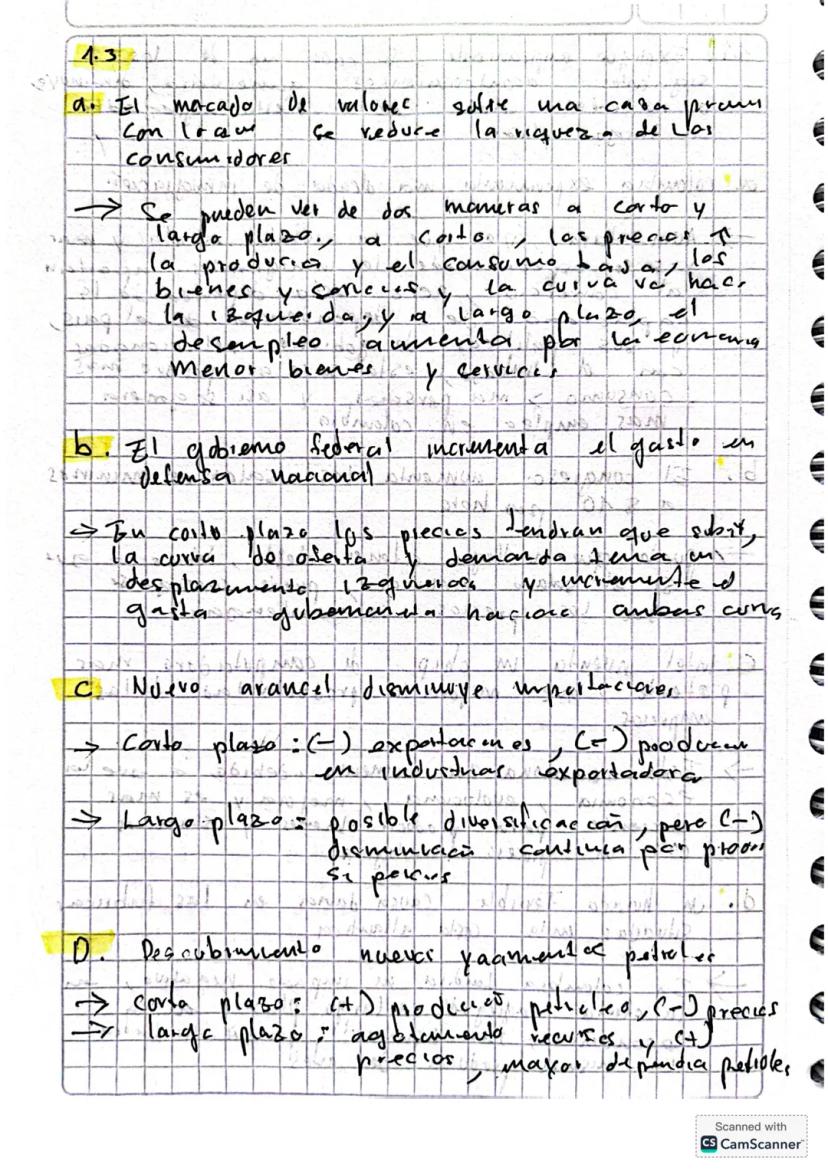 1.3
a. El mercado de valores sufre una caida
con lo que se reduce la riqueza de los
consumidores
→ Se pueden ver de dos maneras a corto y
largo plazo, a corto, los precios ↑
la produccio y el consumo baja, los
bienes y servicios y la curva va hac.
la izquierda, y a largo plazo, el
desempleo aumenta por la economia
menor bienes y servicios
b. El gobierno federal incrementa el gasto en
defensa nacional
→ En corto plazo los precios tendran que subir,
la curva de oferta y demanda un
desplazamiento y incremente el
gasto hacia ambas
C. Nuevo arancel disminuye importaciones
→ Corto plazo : (-) exportaciones, (-)
en industrias exportadora
→ Largo plazo : posible diversificación, pero (-)
disminución continua por
D. Descubrimiento nuevos
→ corto plazo : (+) petroleo, (-) precios
→ largo plazo : agotamiento recursos y (+)
precios, mayor
Scanned with
CS CamScanner